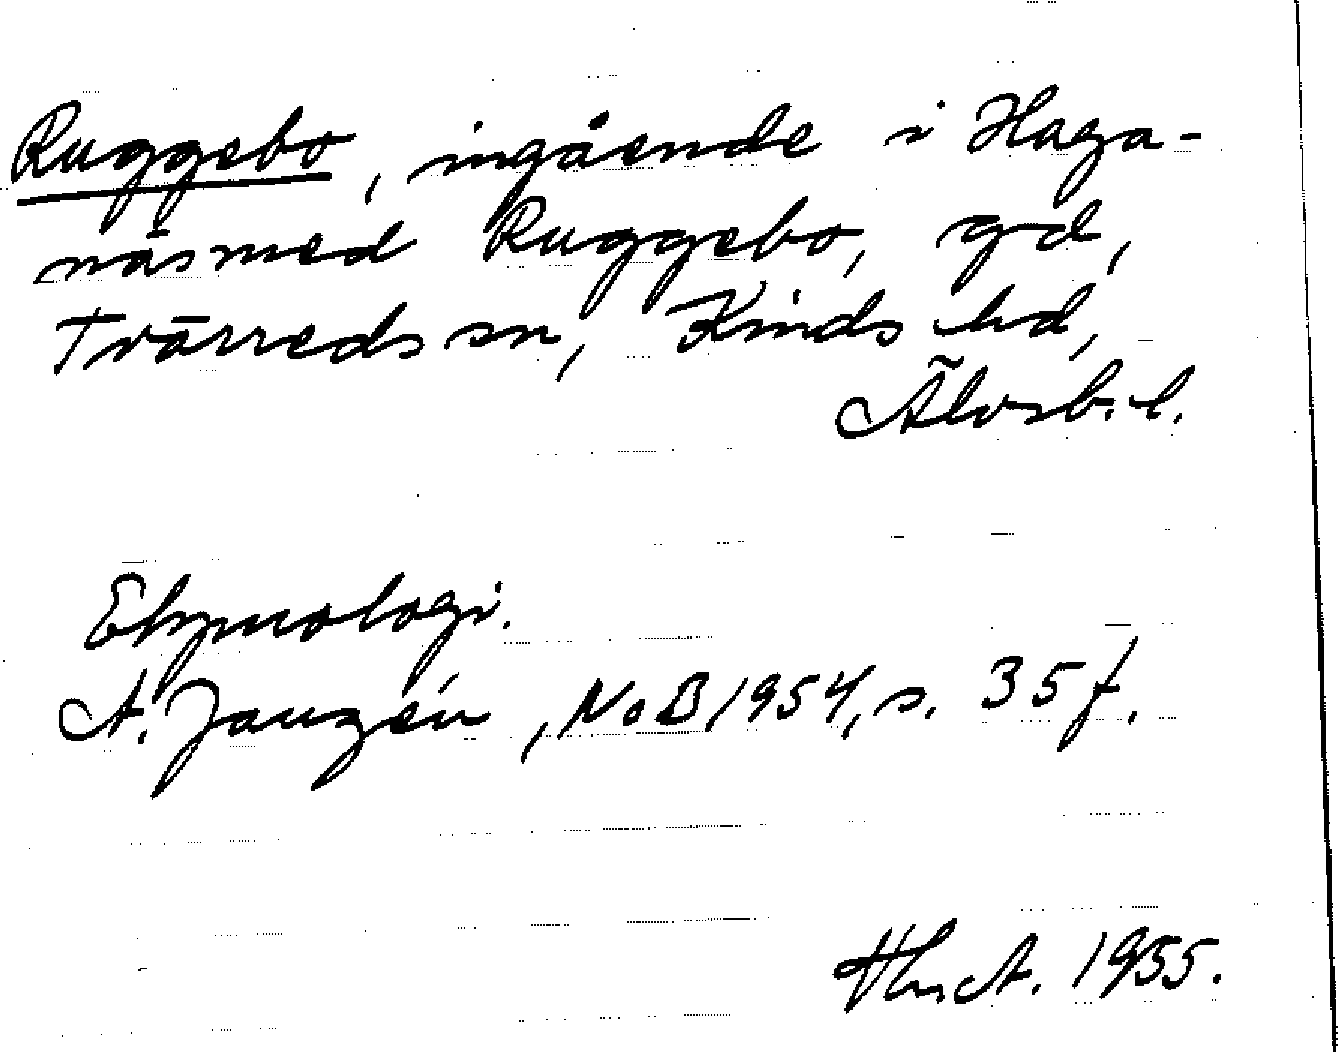 Ruggebo, ingående i Haga-
näs med Ruggebo, gd,
Tvärreds sn, Kinds hd,
Älvsb. l.
Etymologi.
A. Janzén, NoB 1954, s. 35 f.
1955.